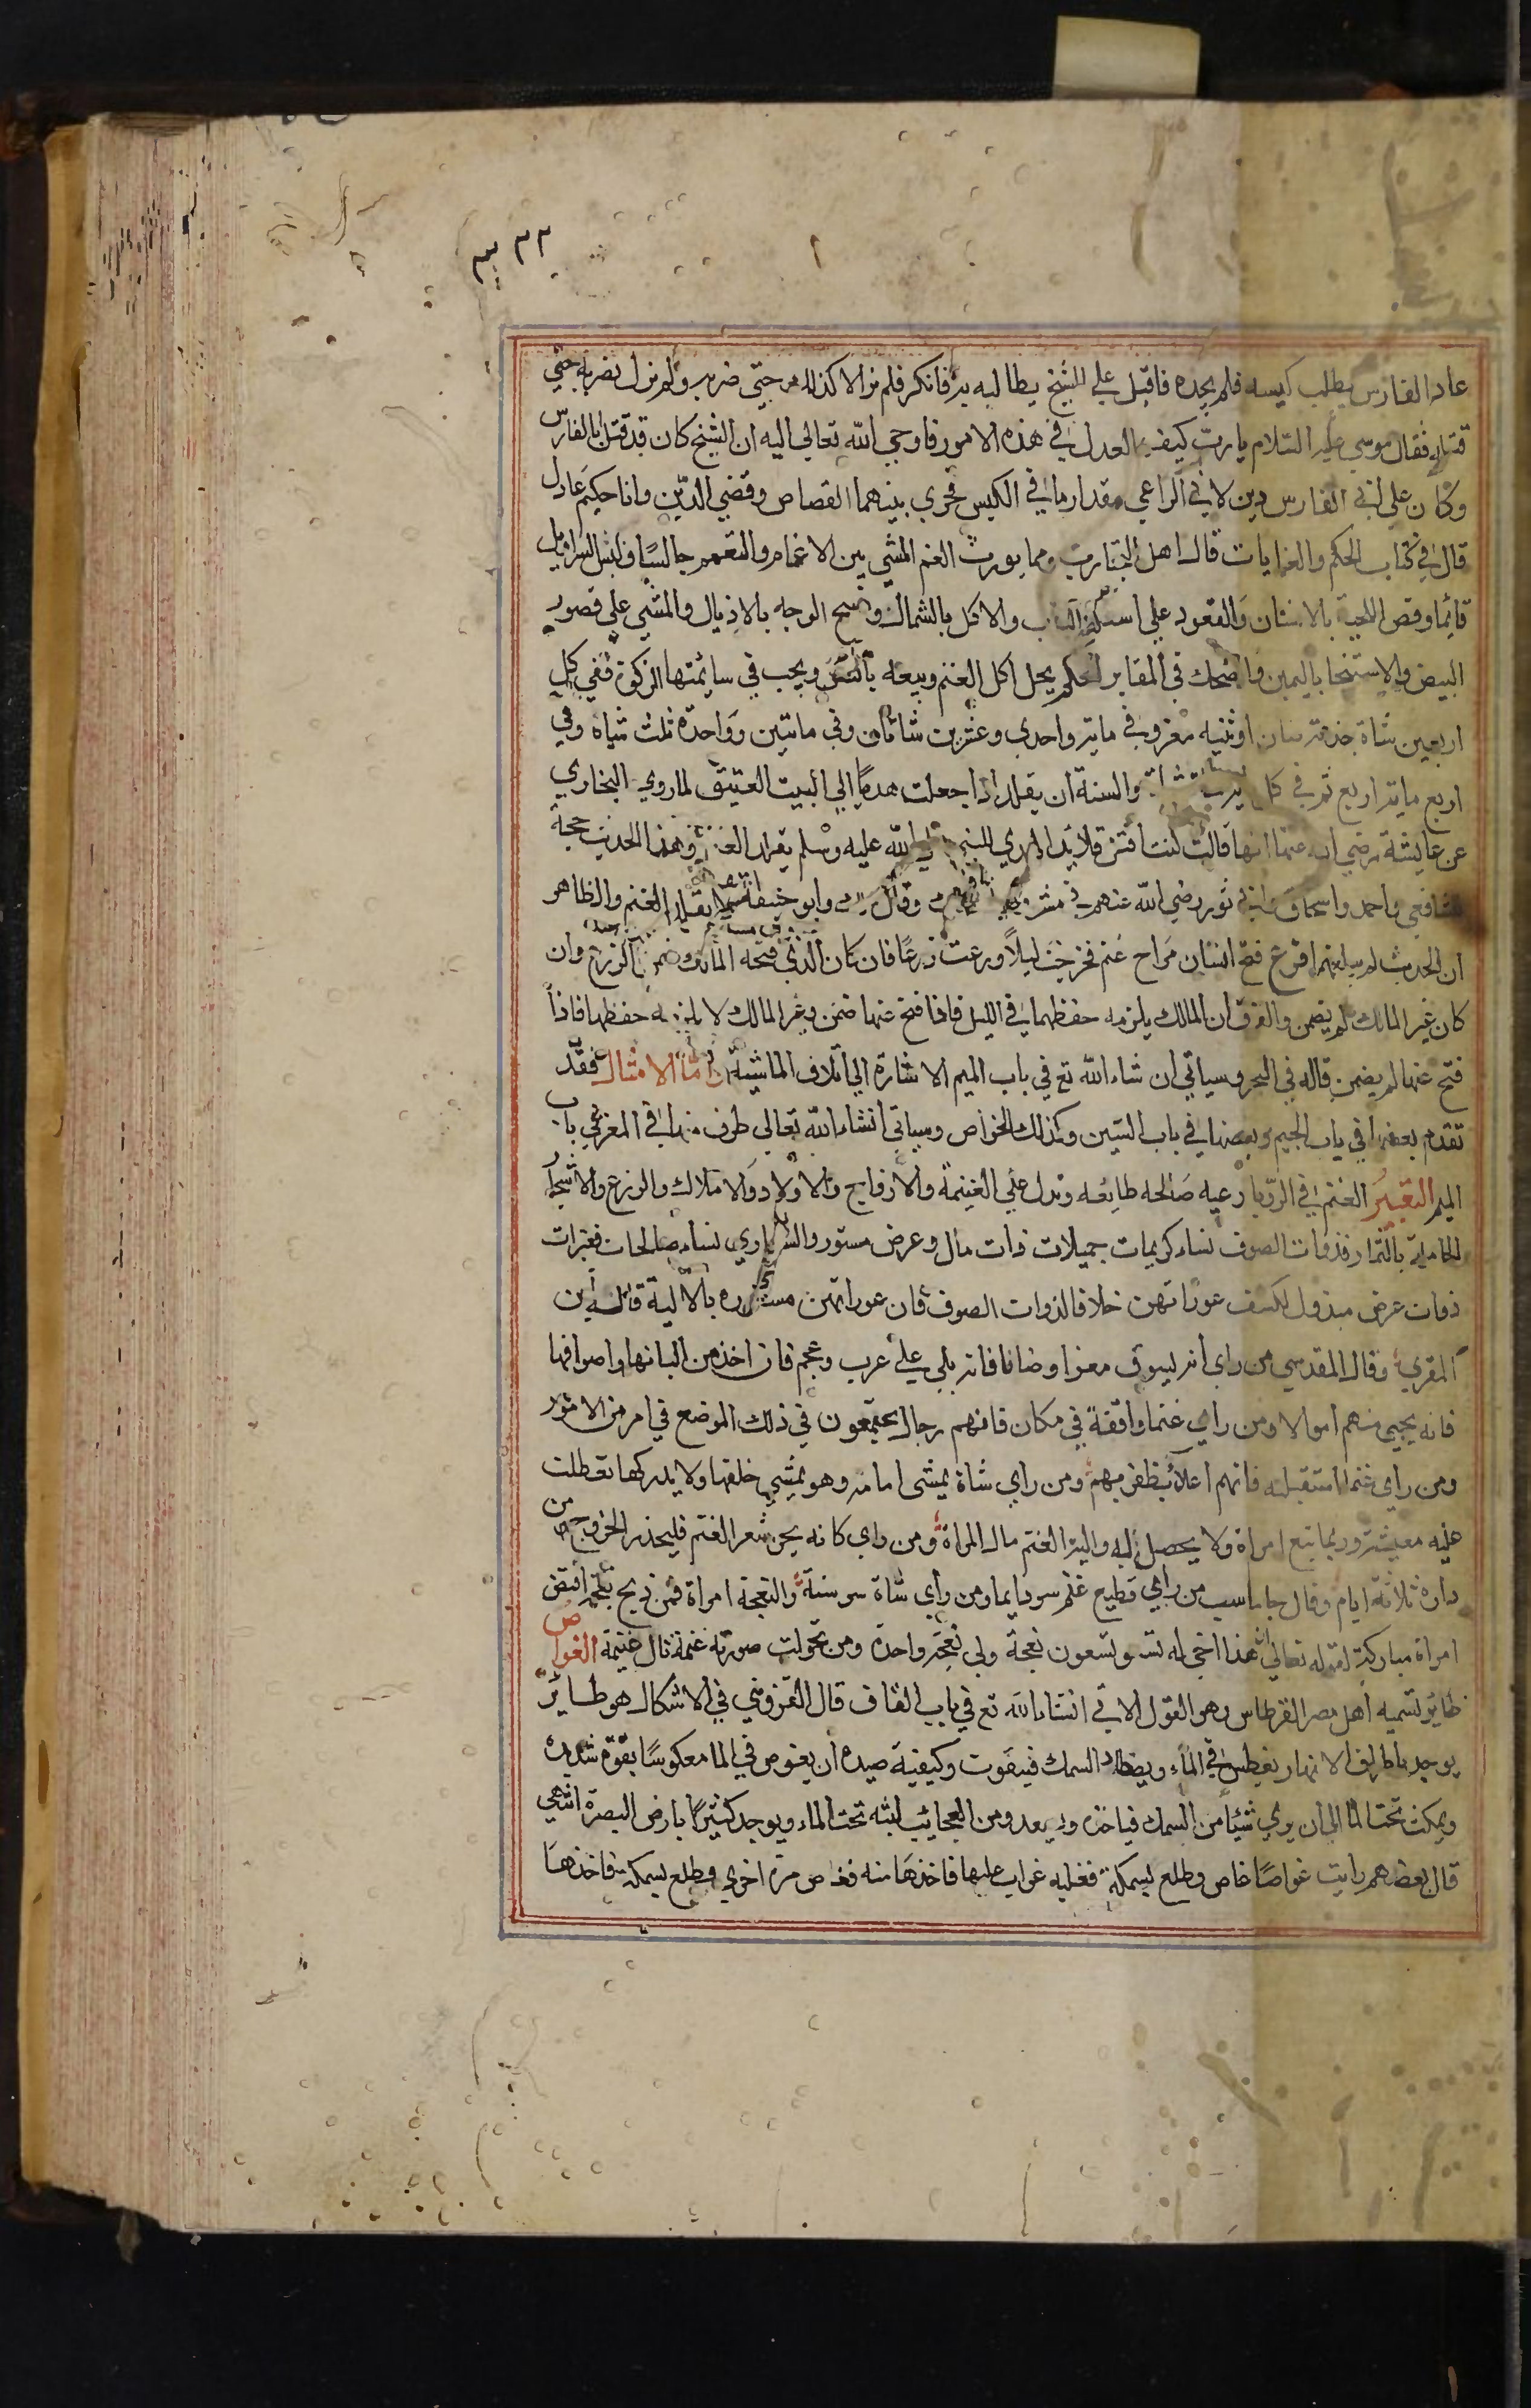 ٣٣٢
عاد الفارس يطلب كيسه فلم يجده فاقبل علي الشيخ يطالبه به فانكر فلم يزالا كذلك حتي ضربه ولم يزل يضربه حتي
قتله فقال موسي عليه السلام يا رب كيف العدل في هذه الامور فاوحي الله تعالي اليه ان الشيخ كان قد قتل ابا الفارس
وكان علي ابي الفارس دين لابي الراعي مقدار ما في الكيس فجري بينهما القصاص وقضي الدين وانا حكيم عادل
قال في كتاب الحكم والغايات قال اهل التجارب ومما يورث الغم المشي بين الاغنام والتعمم جالسا ولبس السراويل
قائما وقص اللحية بالاسنان والقعود علي اسكفة الباب والاكل بالشمال ومسح الوجه بالاذيال والمشي علي قصور
البيض والاستنجا باليمين والضحك في المقابر الحكم يحل اكل الغنم وبيعه بالنص ويجب في سائمتها الزكوة ففي كل
اربعين شاة جذعة ضان او ثنيه معز وفي ماية واحدي وعشرين شاتان وفي مايتين وواحدة ثلث شياه وفي
اربع ماية اربع ثم في كل شاة والسنة ان يقلد اذا جعلت هديا الي البيت العتيق لما روي البخاري
عن عايشة رضي الله عنها انها قالت كنت افتل قلايد الهدي للنبي صلي الله عليه وسلم يقلد الغنم وهذا الحديث حجة
للشافعي واحمد واسحاق وابي ثور رضي الله عنهم في وقال وابو حنيفة لا يقلد الغنم والظاهر
ان الحديث لم يبلغهم فرع فتح انسان مراح غنم فخرجت ليلا ورعت زرعا فان كان الذي فتحه المالك ضمن الزرع وان
كان غير المالك لم يضمن والفرق ان المالك يلزمه حفظها في الليل فاذا فتح عنها ضمن وغير المالك لا يلزمه حفظها فاذا
فتح عنها لم يضمن قاله في البحر وسياتي ان شاء الله تع في باب الميم الاشارة الي اتلاف الماشية واما الامثال فقد
تقدم بعضها في باب الجيم وبعضها في باب السين وكذلك الخواص وسياتي انشا الله تعالي طرف منها في المعز في باب
الميم التعبير الغنم في الرويا رعيه صالحه طايعه وتدل علي الغنيمة والازواج والاولاد والاملاك والزرع والاشجار
الحاملة بالثمار فذوات الصوف نساء كريمات جميلات ذات مال وعرض مستور والشعاري نساء صالحات فقيرات
ذوات عرض مبذول لكشف عوراتهن خلافا لذوات الصوف فان عوراتهن مستوره بالالية قاله ابن
المقري وقال المقدسي من راي انه يسوق معزا وضانا فانه يلي علي عرب وعجم فان اخذ من البانها واصوافها
فانه يجبي منهم اموالا ومن راي غنما واقفة في مكان فانهم رجال يجتمعون في ذلك الموضع في امر من الامور
ومن راي غنما استقبله فانهم اعداء يظفر بهم ومن راي شاة يمشي امامه وهو يمشي خلفها ولا يدركها تعطلت
عليه معيشته وربما يتبع امراة ولا يحصل له والية الغنم مال المراة ومن راي كانه يجز شعر الغنم فليحذر الخروج من
داره ثلاثة ايام وقال جاماسب من راي قطيع غنم سر دايما ومن راي شاة سر سنة والنعجة امراة فمن ذبح نعجة افتض
امراة مباركة لقوله تعالي ان هذا اخي له تسع وتسعون نعجة ولي نعجة واحدة ومن تحولت صورته غنمة نال غنيمة الغواص
طاير تسميه اهل مصر القرطاس وهو القول الاتي انشاء الله تع في باب القاف قال القزويني في الاشكال هو طاير
يوجد باطراف الانهار يغطس في الماء ويصطاد السمك فيتقوت وكيفية صيده ان يغوص في الما معكوسا بقوة شديدة
ويمكث تحت الما الي ان يري شيئا من السمك فياخذه ويصعد ومن العجايب لبثه تحت الماء ويوجد كثيرا بارض البصرة انتهي
قال بعضهم رايت غواصا غاص وطلع بسمكة فغلبه غراب عليها فاخذها منه فغاص مرة اخري وطلع بسمكة فاخذها